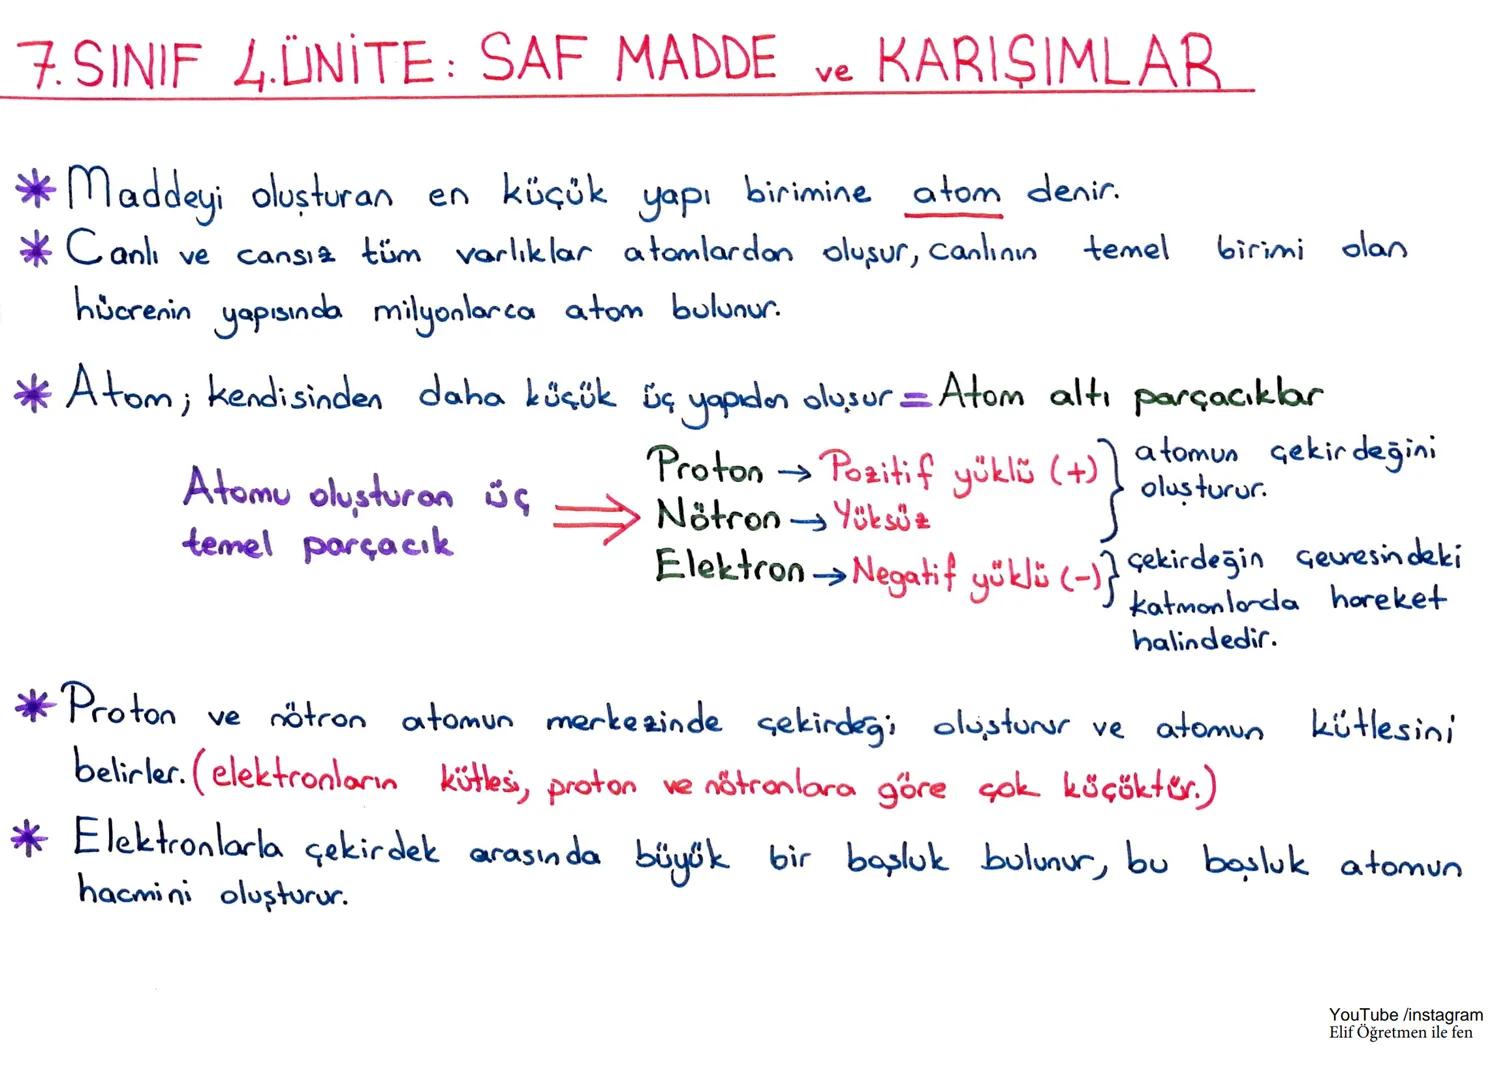 7. SINIF 4.ÜNİTE: SAF MADDE ve KARIŞIMLAR
* Maddeyi oluşturan en küçük yapı birimine atom denir.
* Canlı ve cansız tüm varlıklar atomlardan oluşur, canlının temel birimi olan
hücrenin yapısında milyonlarca atom bulunur.
* Atom; kendisinden daha küçük üç yapıdan oluşur = Atom altı parçacıklar
Atomu oluşturan üç
temel parçacık
⇒
Proton → Pozitif yüklü (+)
Nötron → Yüksüz
} atomun çekirdeğini
oluşturur.
Elektron → Negatif yüklü (-) } çekirdeğin çevresindeki
katmanlarda hareket
halindedir.
* Proton ve nötron atomun merkezinde çekirdeği oluşturur ve atomun kütlesini
belirler. (elektronların kütlesi, proton ve nötronlara göre çok küçüktür.)
* Elektronlarla çekirdek arasında büyük bir boşluk bulunur, bu boşluk atomun
hacmini oluşturur.
YouTube /instagram
Elif Öğretmen ile fen